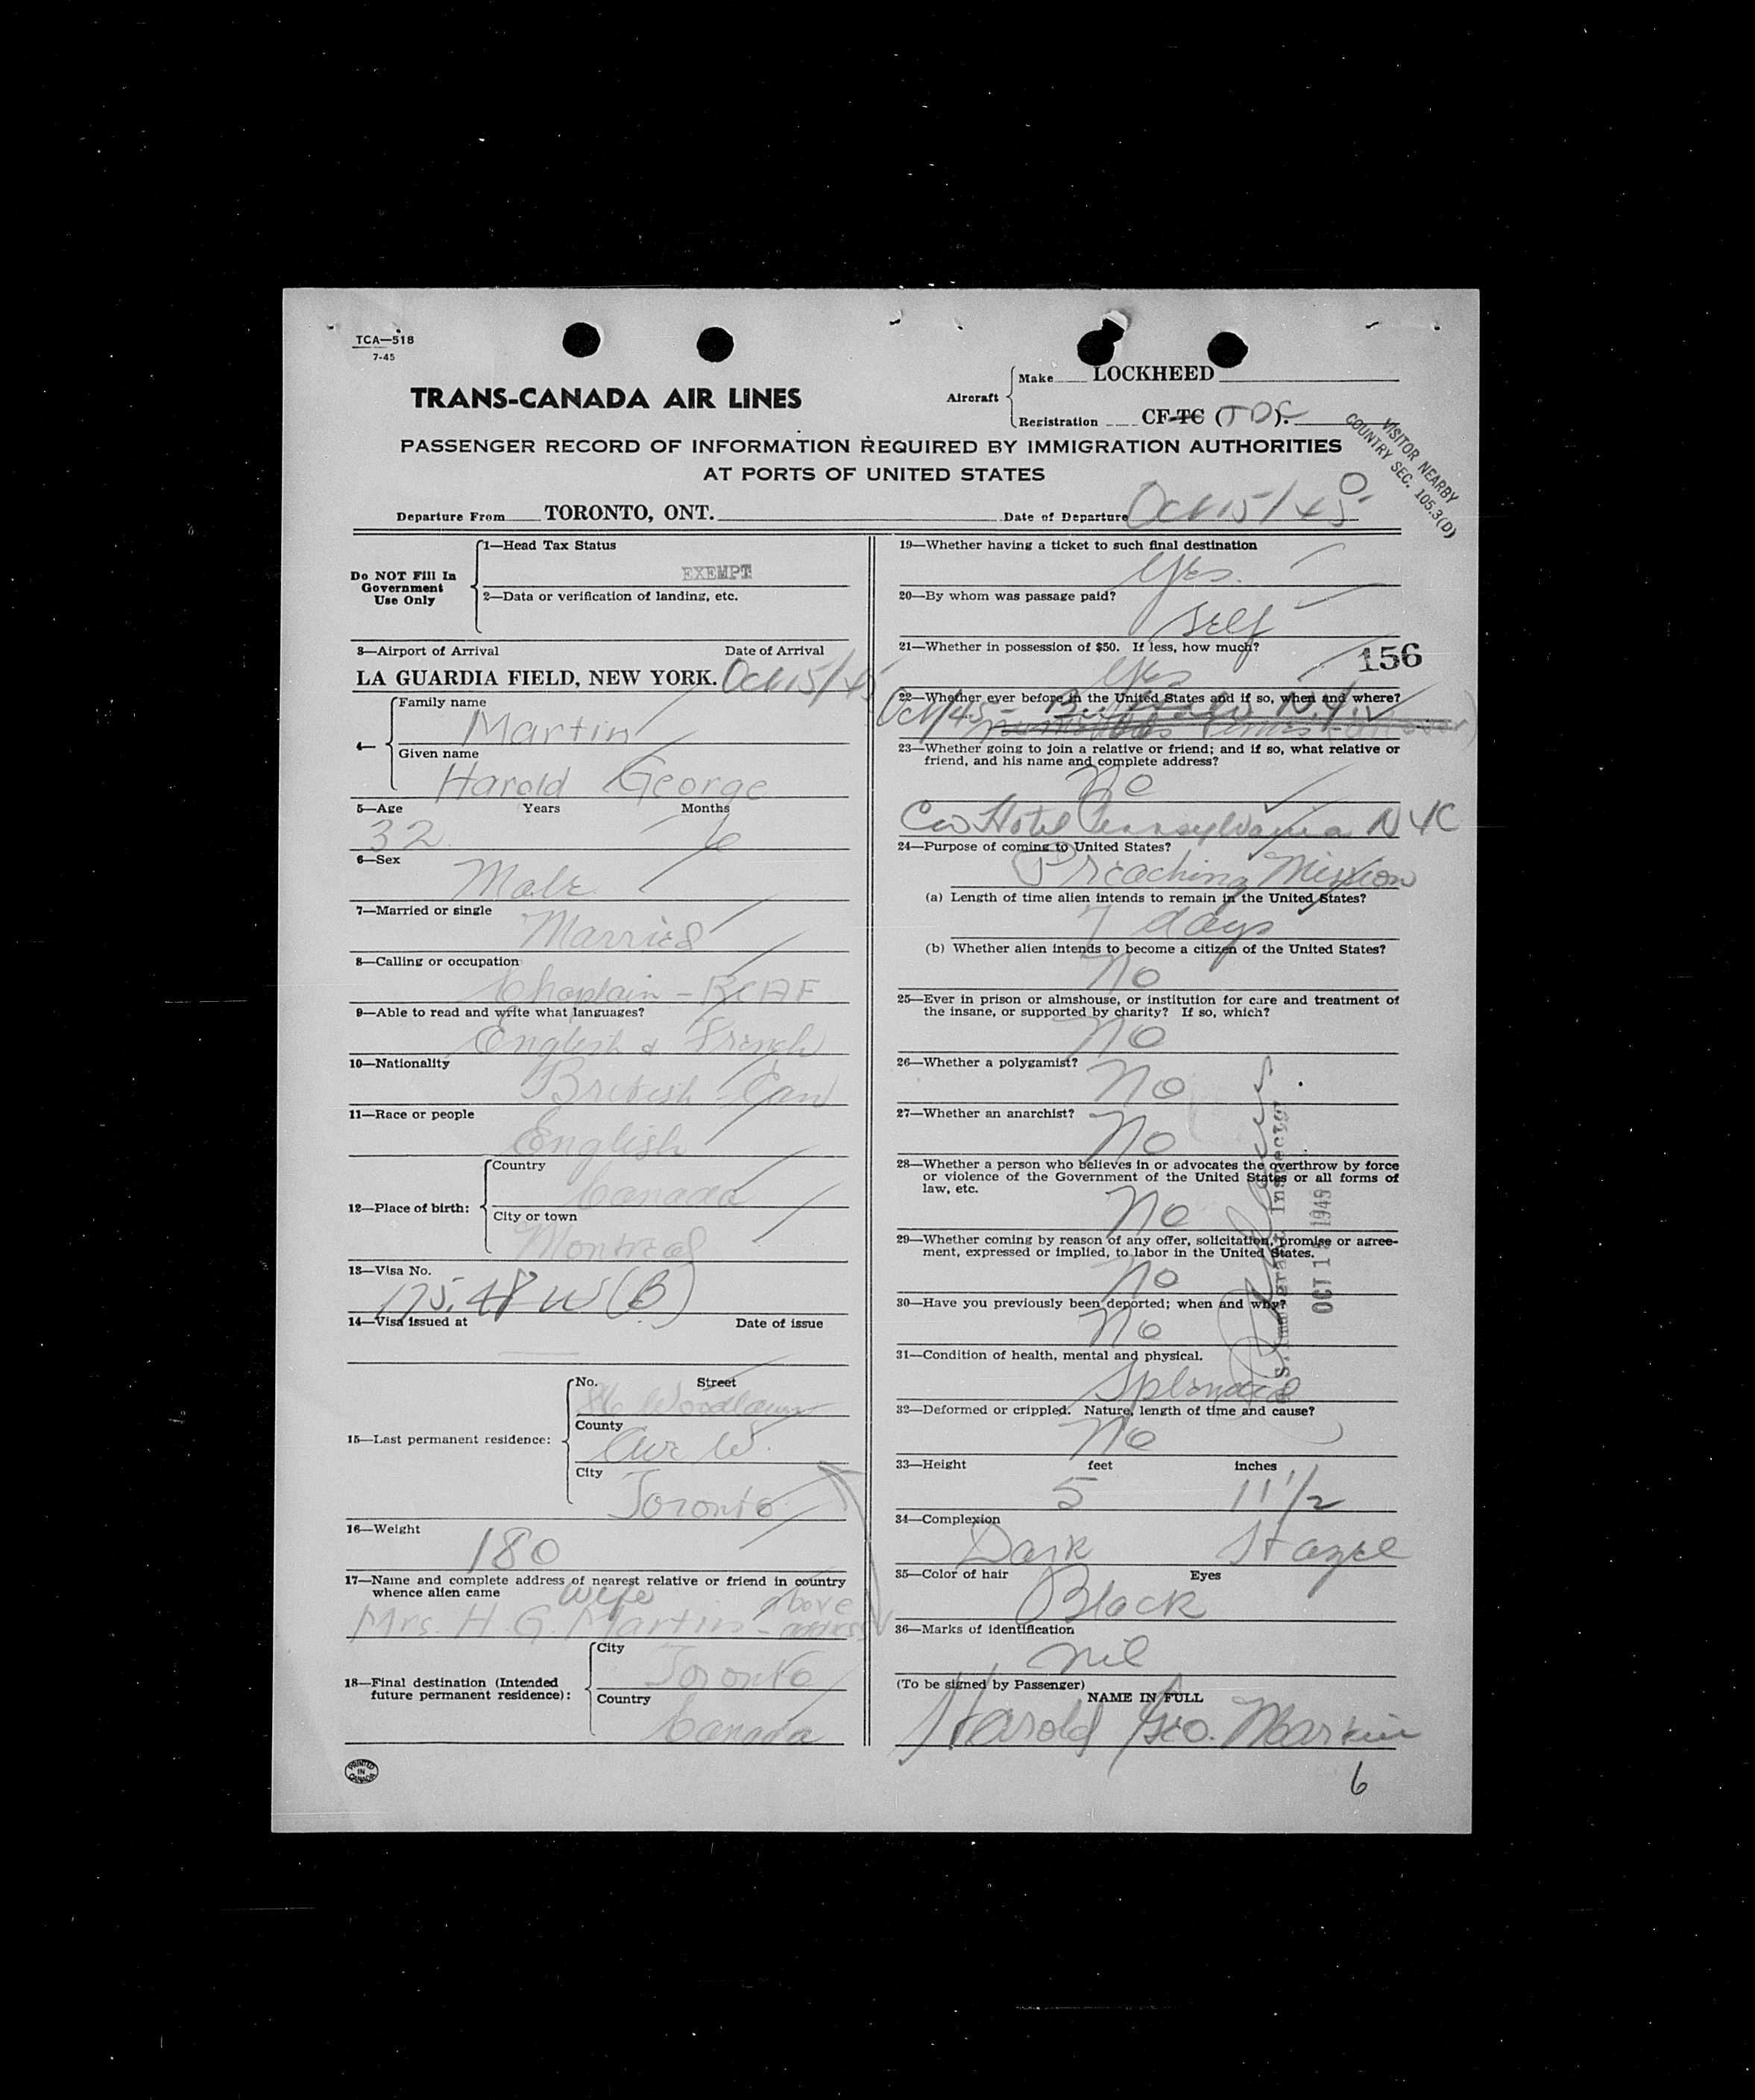 TCA—518
7-45
TRANS-CANADA AIR LINES
Aircraft
Make LOCKHEED
Registration CF-TC (TDF).
PASSENGER RECORD OF INFORMATION REQUIRED BY IMMIGRATION AUTHORITIES
AT PORTS OF UNITED STATES
VISITOR NEARBY
COUNTRY SEC. 105.3(D)
Departure From TORONTO, ONT. Date of Departure Oct 15/45
Do NOT Fill In
Government
Use Only
1—Head Tax Status
EXEMPT
2—Data or verification of landing, etc.
3—Airport of Arrival Date of Arrival
LA GUARDIA FIELD, NEW YORK. Oct 15/45
4—
Family name
Martin
Given name
Harold George
5—Age Years Months
32 6
6—Sex
Male
7—Married or single
Married
8—Calling or occupation
Chaplain - RCAF
9—Able to read and write what languages?
English & French
10—Nationality
British - Can
11—Race or people
English
12—Place of birth:
Country
Canada
City or town
Montreal
13—Visa No.
175.48 W (B)
14—Visa issued at Date of issue
15—Last permanent residence:
No. Street
86 Woodlawn
County
Ave W.
City
Toronto
16—Weight
180
17—Name and complete address of nearest relative or friend in country
whence alien came
wife
Mrs. H. G. Martin - above address
18—Final destination (Intended
future permanent residence):
City
Toronto
Country
Canada
PRINTED
IN
CANADA
19—Whether having a ticket to such final destination
Yes.
20—By whom was passage paid?
Self
21—Whether in possession of $50. If less, how much?
Yes
156
22—Whether ever before in the United States and if so, when and where?
Oct/45 - N.Y.
23—Whether going to join a relative or friend; and if so, what relative or
friend, and his name and complete address?
No
Hotel Pennsylvania NYC
24—Purpose of coming to United States?
Preaching Mission
(a) Length of time alien intends to remain in the United States?
7 days
(b) Whether alien intends to become a citizen of the United States?
No
25—Ever in prison or almshouse, or institution for care and treatment of
the insane, or supported by charity? If so, which?
No
26—Whether a polygamist?
No
27—Whether an anarchist?
No
28—Whether a person who believes in or advocates the overthrow by force
or violence of the Government of the United States or all forms of
law, etc.
No
29—Whether coming by reason of any offer, solicitation, promise or agree-
ment, expressed or implied, to labor in the United States.
No
30—Have you previously been deported; when and why?
No
31—Condition of health, mental and physical.
Splendid
32—Deformed or crippled. Nature, length of time and cause?
No
33—Height feet inches
5 11 1/2
34—Complexion
Dark Hazel
35—Color of hair Eyes
Black
36—Marks of identification
Nil
(To be signed by Passenger)
NAME IN FULL
Harold Geo. Martin
6
Inspector